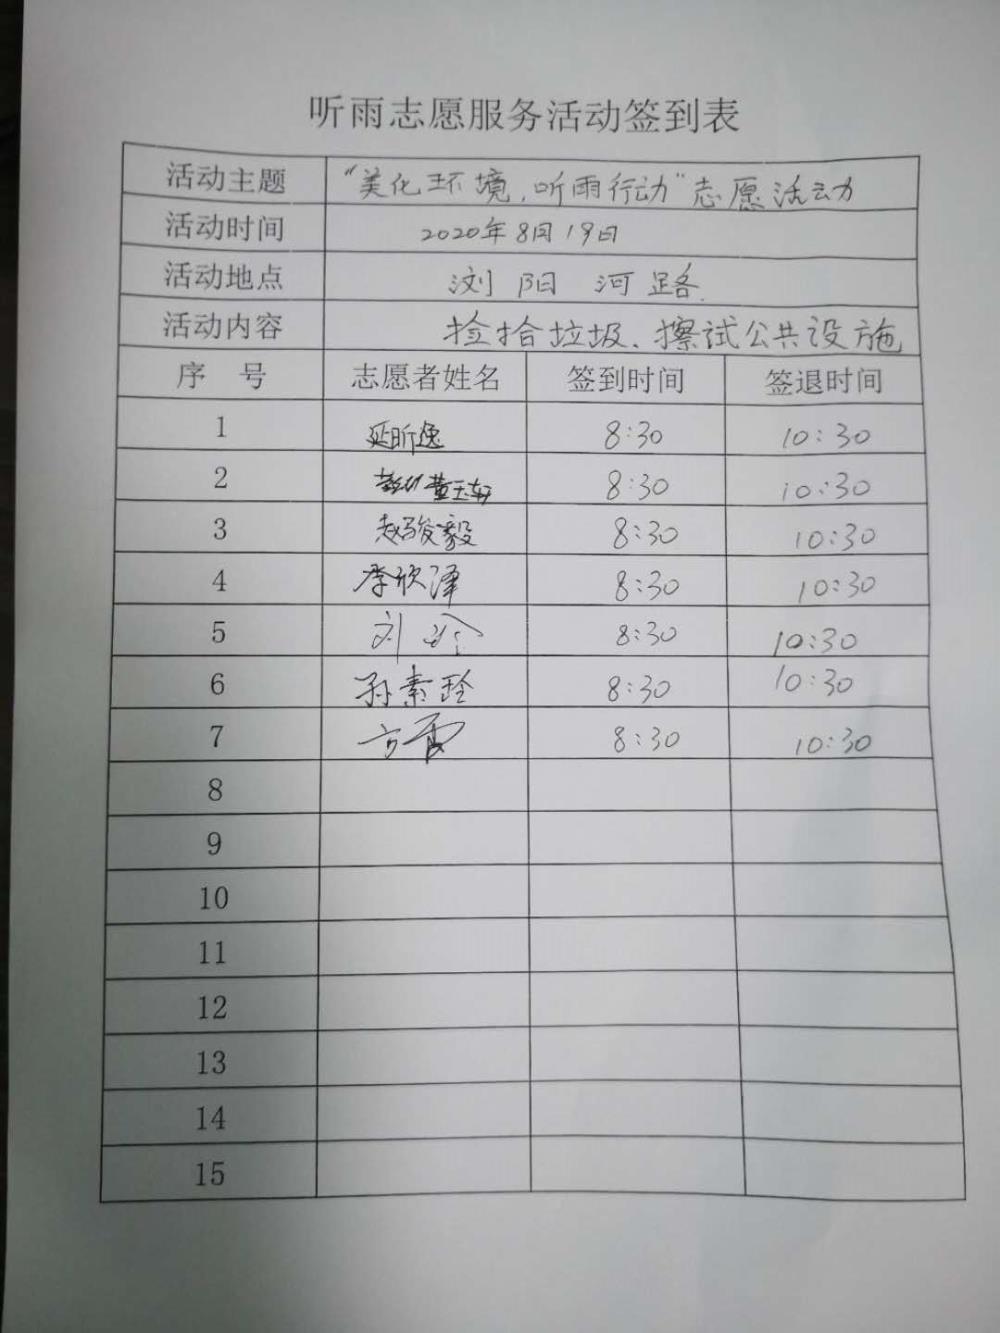 听雨志愿服务活动签到表
活动主题 “美化环境,听雨行动”志愿活动
活动时间 2020年8月19日
活动地点 浏阳河路
活动内容 捡拾垃圾、擦试公共设施
序 号 志愿者姓名 签到时间 签退时间
1 延昕逸 8:30 10:30
2 黄玉轩 8:30 10:30
3 赵骏毅 8:30 10:30
4 李欣泽 8:30 10:30
5 刘 8:30 10:30
6 孙素玲 8:30 10:30
7 方雷 8:30 10:30
8
9
10
11
12
13
14
15